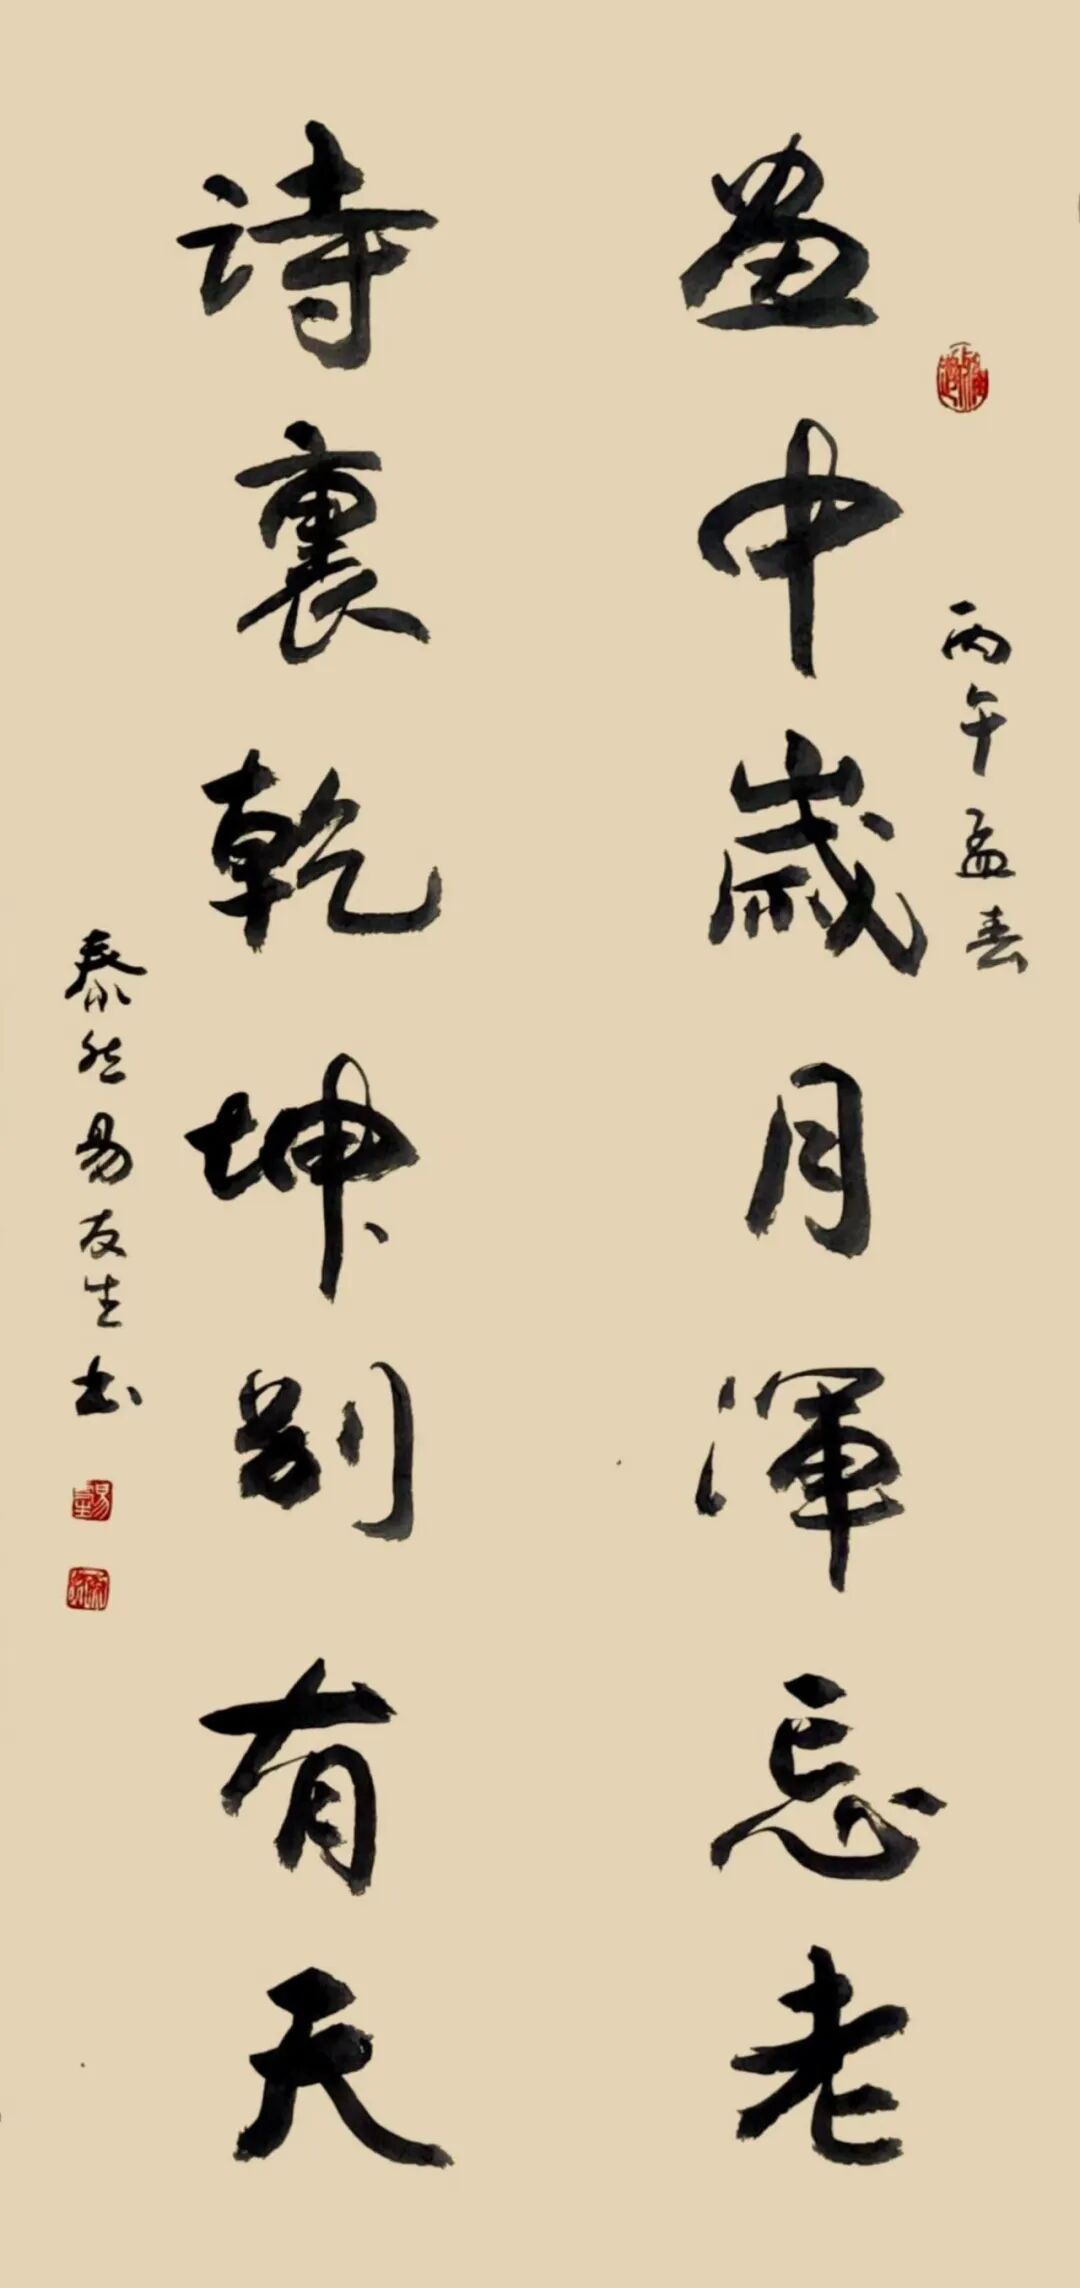 畫中歲月渾忘老
丙午孟春
诗裏乾坤别有天
泰然易友生书